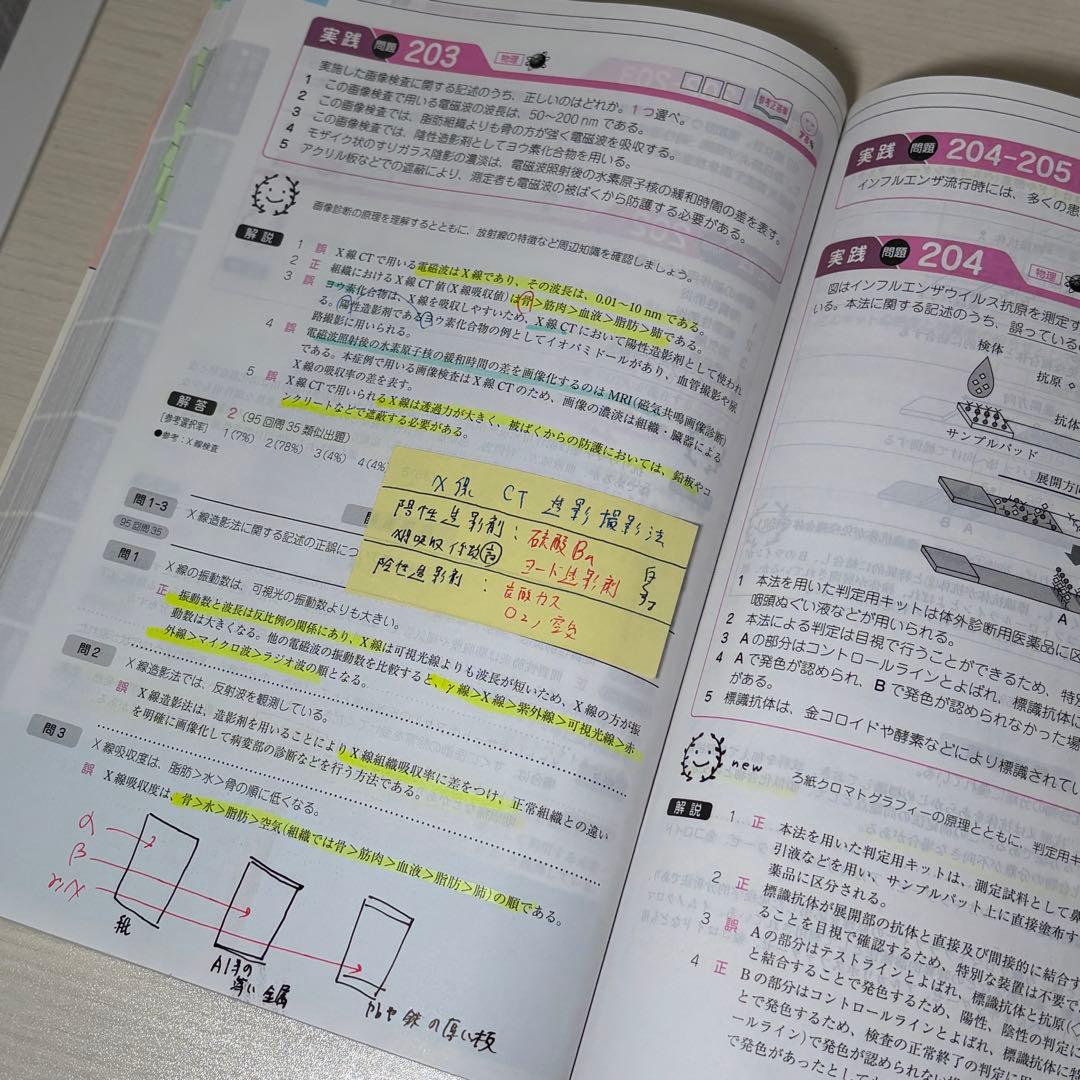 実践 問題 203 物理
実施した画像検査に関する記述のうち、正しいのはどれか。1つ選べ。
1 この画像検査で用いる電磁波の波長は、50〜200 nmである。
2 この画像検査では、脂肪組織よりも骨の方が強く電磁波を吸収する。
3 この画像検査では、陰性造影剤としてヨウ素化合物を用いる。
4 モザイク状のすりガラス陰影の濃淡は、電磁波照射後の水素原子核の緩和時間の差を表す。
5 アクリル板などでの遮蔽により、測定者も電磁波の被ばくから防護する必要がある。
画像診断の原理を理解するとともに、放射線の特徴など周辺知識を確認しましょう。
解説
1 誤 X線CTで用いる電磁波はX線であり、その波長は、0.01〜10 nmである。
2 正 組織におけるX線CT値(X線吸収値)は骨>筋肉>血液>脂肪>肺である。
3 誤 ヨウ素化合物は、X線を吸収しやすいため、X線CTにおいて陽性造影剤として使われ
る。陽性造影剤であるヨウ素化合物の例としてイオパミドールがあり、血管撮影や尿
路撮影に用いられる。
4 誤 電磁波照射後の水素原子核の緩和時間の差を画像化するのはMRI(磁気共鳴画像診断)
である。本症例で用いる画像検査はX線CTのため、画像の濃淡は組織・臓器による
X線の吸収率の差を表す。
5 誤 X線CTで用いられるX線は透過力が大きく、被ばくからの防護においては、鉛板やコ
ンクリートなどで遮蔽する必要がある。
解答 2 (95回問35類似出題)
[参考選択率] 1(7%) 2(78%) 3(4%) 4(4%
●参考:X線検査
X線 CT 造影撮影法
陽性造影剤:硫酸Ba
吸収係数高 ヨード造影剤 白
陰性造影剤:炭酸ガス
O₂,空気
問1-3
95回問35
X線造影法に関する記述の正誤につ
問1 X線の振動数は、可視光の振動数よりも大きい。
正 振動数と波長は反比例の関係にあり、X線は可視光線よりも波長が短いため、X線の方が振
動数は大きくなる。他の電磁波の振動数を比較すると、γ線>X線>紫外線>可視光線>赤
外線>マイクロ波>ラジオ波の順となる。
問2 X線造影法では、反射波を観測している。
誤 X線造影法は、造影剤を用いることによりX線組織吸収率に差をつけ、正常組織との違い
を明確に画像化して病変部の診断などを行う方法である。
問3 X線吸収度は、脂肪>水>骨の順に低くなる。
誤 X線吸収度は、骨>水>脂肪>空気(組織では骨>筋肉>血液>脂肪>肺)の順である。
α
β
γ,X
紙
Al等の
薄い金属
Pbや鉄の厚い板
実践 問題 204-205
インフルエンザ流行時には、多くの患
実践 問題 204 物理
図はインフルエンザウイルス抗原を測定す
いる。本法に関する記述のうち、誤っている
検体
抗原
抗体
サンプルパッド
展開方向
B A
A
1 本法を用いた判定用キットは体外診断用医薬品に区
咽頭ぬぐい液などが用いられる。
2 本法による判定は目視で行うことができるため、特別
3 Aの部分はコントロールラインとよばれ、標識抗体に
4 Aで発色が認められ、Bで発色が認められなかった場
がある。
5 標識抗体は、金コロイドや酵素などにより標識されてい
new
ろ紙クロマトグラフィーの原理とともに、判定用キ
解説
1 正 本法を用いた判定用キットは、測定試料として鼻
引液などを用い、サンプルパット上に直接塗布す
薬品に区分される。
2 正 標識抗体が展開部の抗体と直接及び間接的に結合す
ることを目視で確認するため、特別な装置は不要で
3 誤 Aの部分はテストラインとよばれ、標識抗体と抗原(
と結合することで発色するため、陽性、陰性の判定に
4 正 Bの部分はコントロールラインとよばれ、標識抗体に特
とで発色するため、検査の正常終了の判定に用
ールライン)で発色が認められない
で発色があったとして